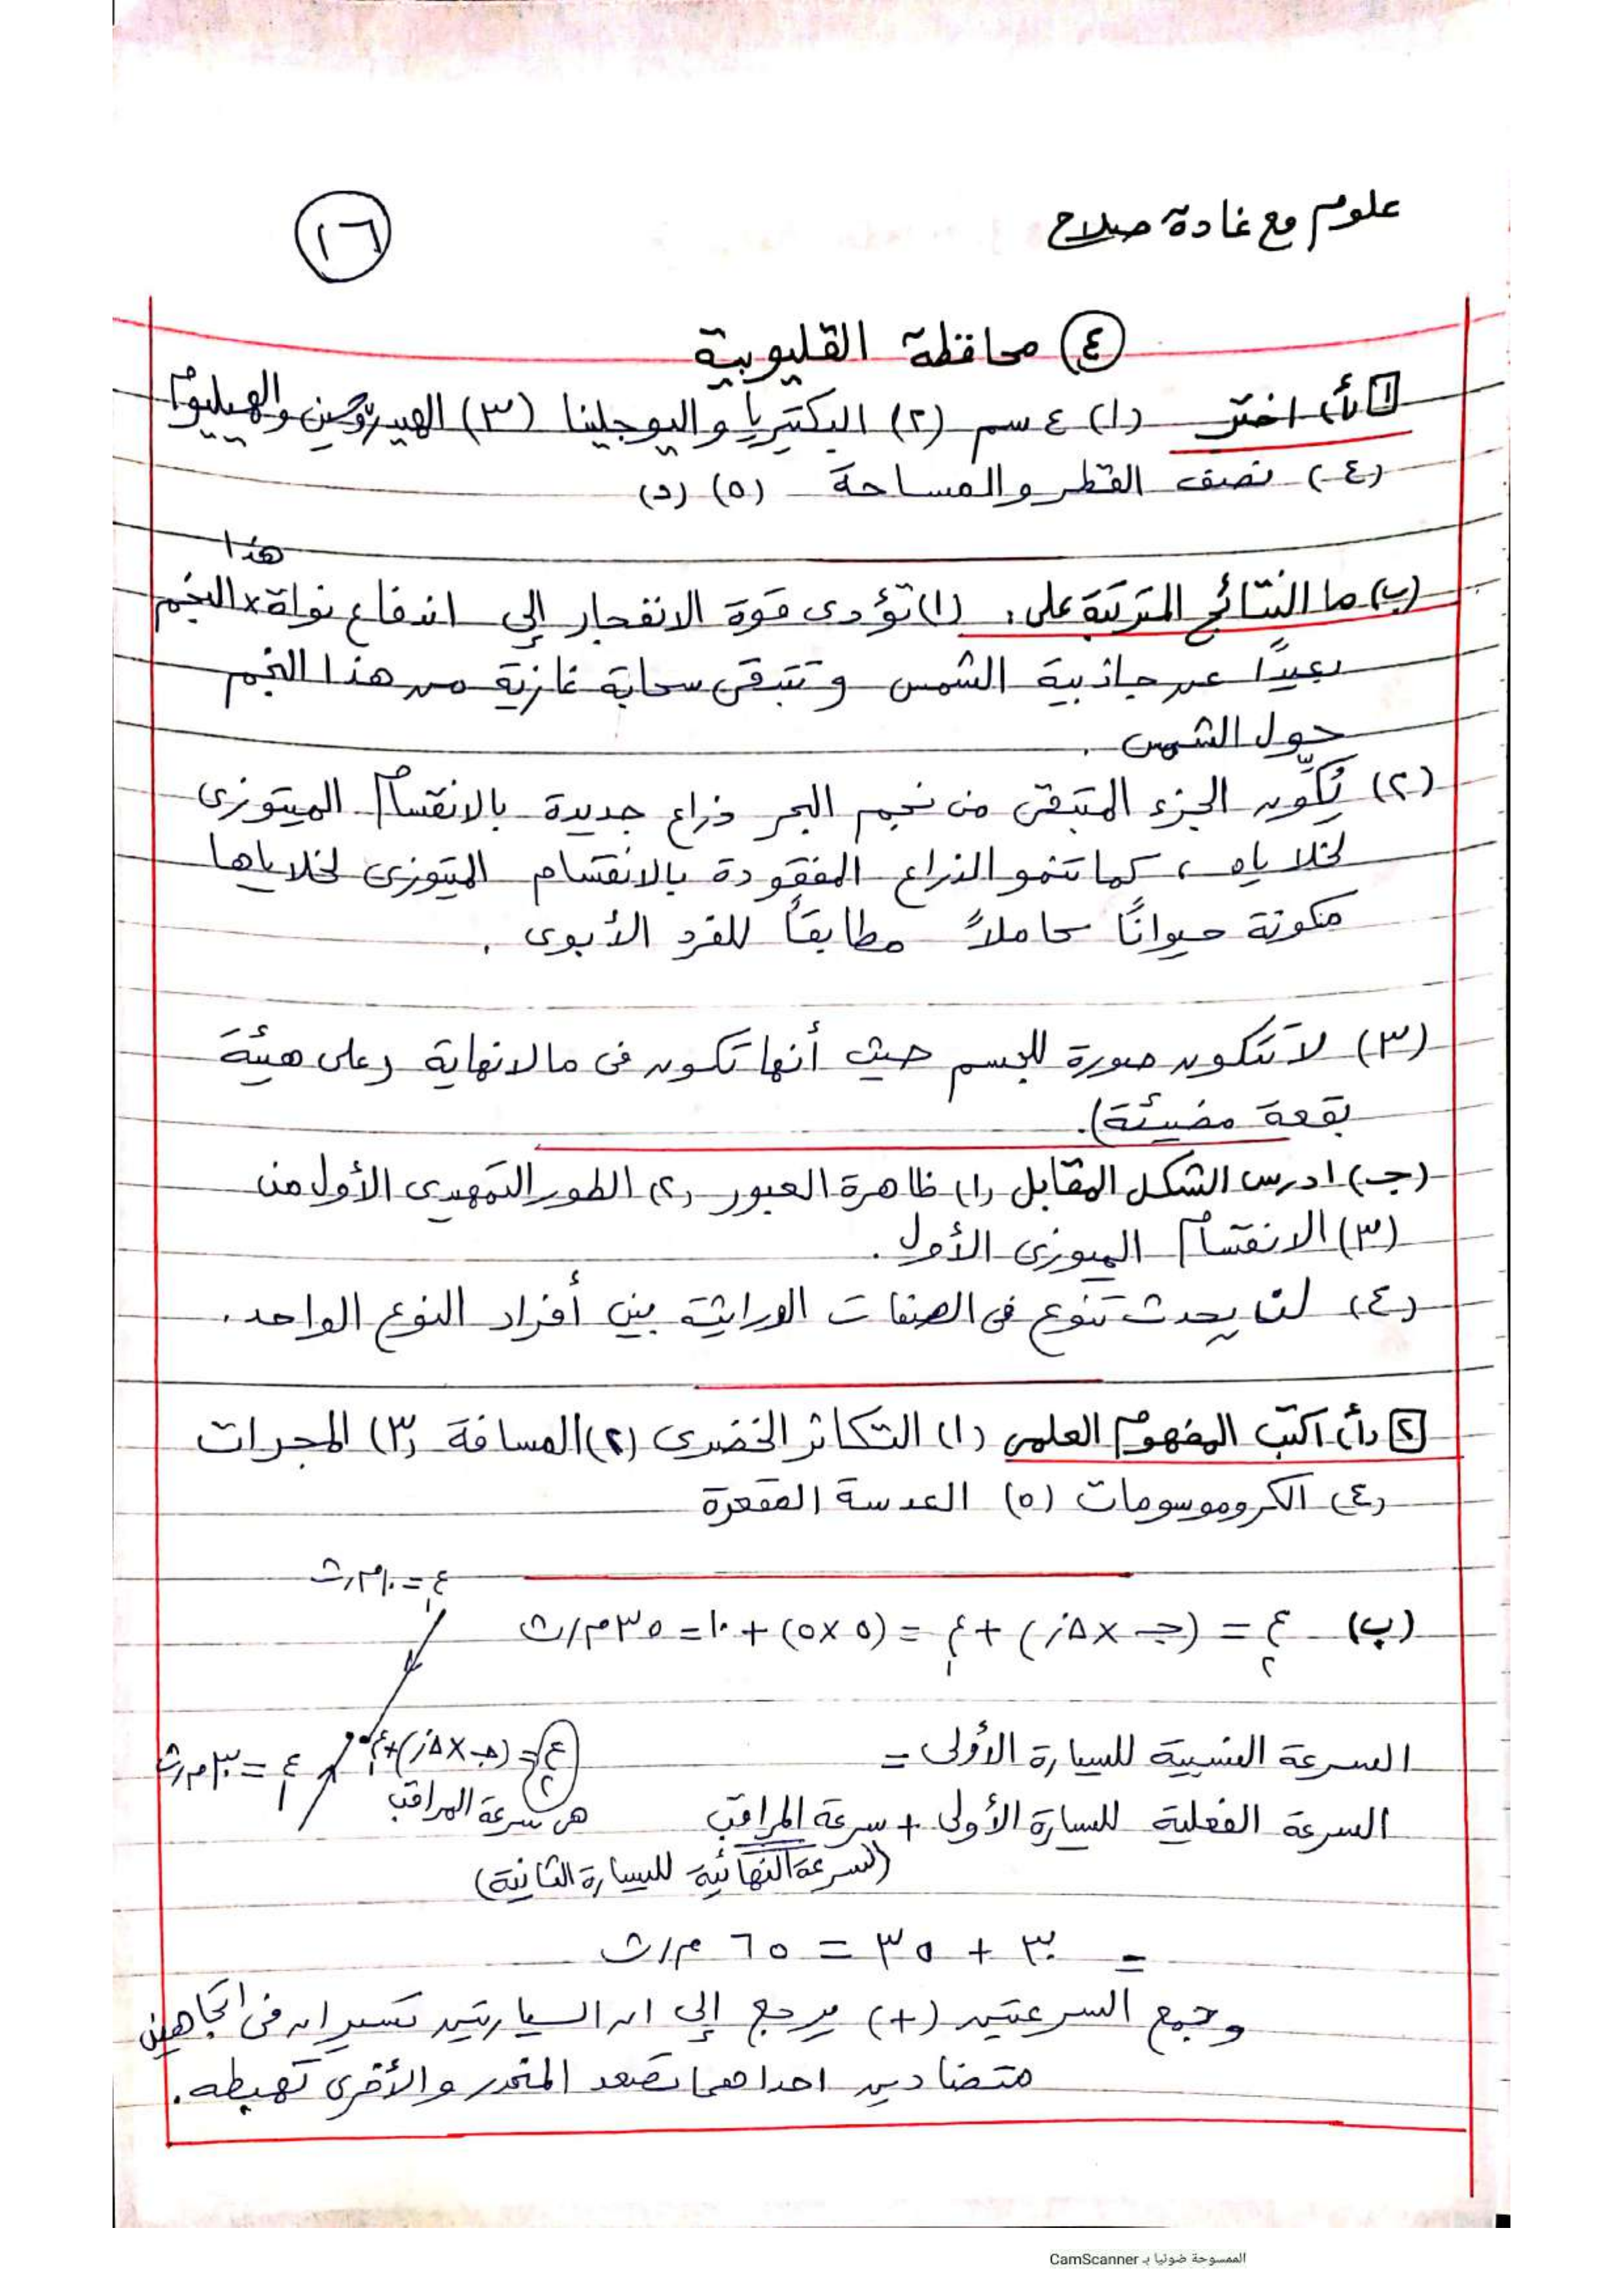 علوم مع غادة صلاح
١٦
٤ محافظة القليوبية
١ (أ) اختر (١) ٤ سم (٢) البكتيريا واليوجلينا (٣) الهيدروجين والهيليوم
(٤) نصف القطر والمساحة (٥) (د)
(ب) ما النتائج المترتبة على: (١) تؤدى قوة الانفجار إلى اندفاع نواة × النجم
هذا
بعيدًا عن جاذبية الشمس وتتبقى سحابة غازية من هذا النجم
حول الشمس.
(٢) يُكَوِّن الجزء المتبقى من نجم البحر ذراع جديدة بالانقسام الميتوزى
لخلاياه، كما تنمو الذراع المفقودة بالانقسام الميتوزى لخلاياها
مكونة حيوانًا كاملاً مطابقاً للفرد الأبوى.
(٣) لا تتكون صورة للجسم حيث أنها تكون فى مالانهاية (على هيئة
بقعة مضيئة).
(ج) ادرس الشكل المقابل (١) ظاهرة العبور (٢) الطور التمهيدى الأول من
(٣) الانقسام الميوزى الأول.
(٤) لن يحدث تنوع فى الصفات الوراثية بين أفراد النوع الواحد.
٢ (أ) اكتب المفهوم العلمى (١) التكاثر الخضرى (٢) المسافة (٣) المجرات
(٤) الكروموسومات (٥) العدسة المقعرة
ع١ = ١٠ م/ث
(ب) ع٢ = (جـ × Δز) + ع١ = (٥ × ٥) + ١٠ = ٣٥ م/ث
السرعة النسبية للسيارة الأولى =
ع٢ = (جـ × Δز) + ع١
ع١ = ٣٠ م/ث
السرعة الفعلية للسيارة الأولى + سرعة المراقب
هى سرعة المراقب
(السرعة النهائية للسيارة الثانية)
= ٣٠ + ٣٥ = ٦٥ م/ث
وجمع السرعتين (+) يرجع إلى ان السيارتين تسيران فى اتجاهين
متضادين احداهما تصعد المنحدر والأخرى تهبطه.
الممسوحة ضوئيا بـ CamScanner